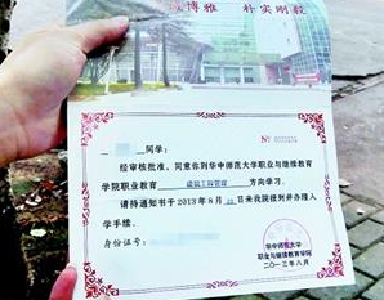 博雅 朴实刚毅
同学:
经审核批准,同意你到华中师范大学职业与继续教育
学院职业教育 建筑工程管理 方向学习。
请持通知书于2013年9月 日来我院报到并办理入
学手续。
身份证号:
华中师范大学
职业与继续教育学院
二〇一三年八月